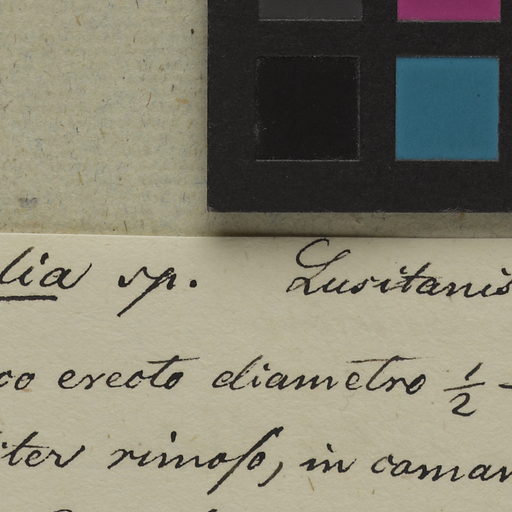 lia sp. Lusitanis
co erecto diametro 1/2 -
iter rimoſo, in coman